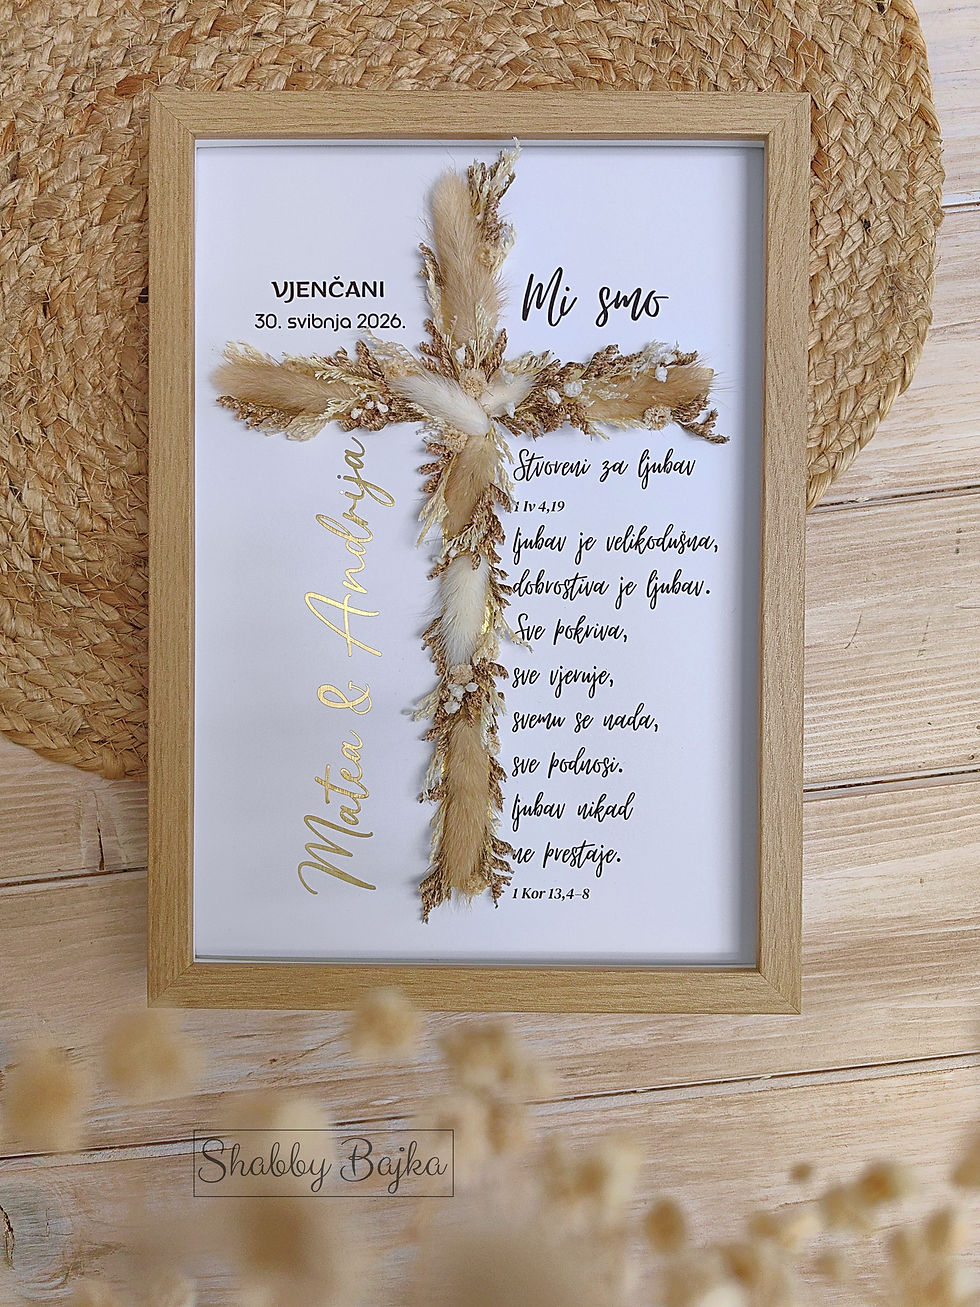 VJENČANI
30. svibnja 2026.
Matea & Andrija
Mi smo
Stvoreni za ljubav
1 Iv 4,19
ljubav je velikodušna,
dobrostiva je ljubav.
Sve pokriva,
sve vjeruje,
svemu se nada,
sve podnosi.
ljubav nikad
ne prestaje.
1 Kor 13,4-8
Shabby Bajka